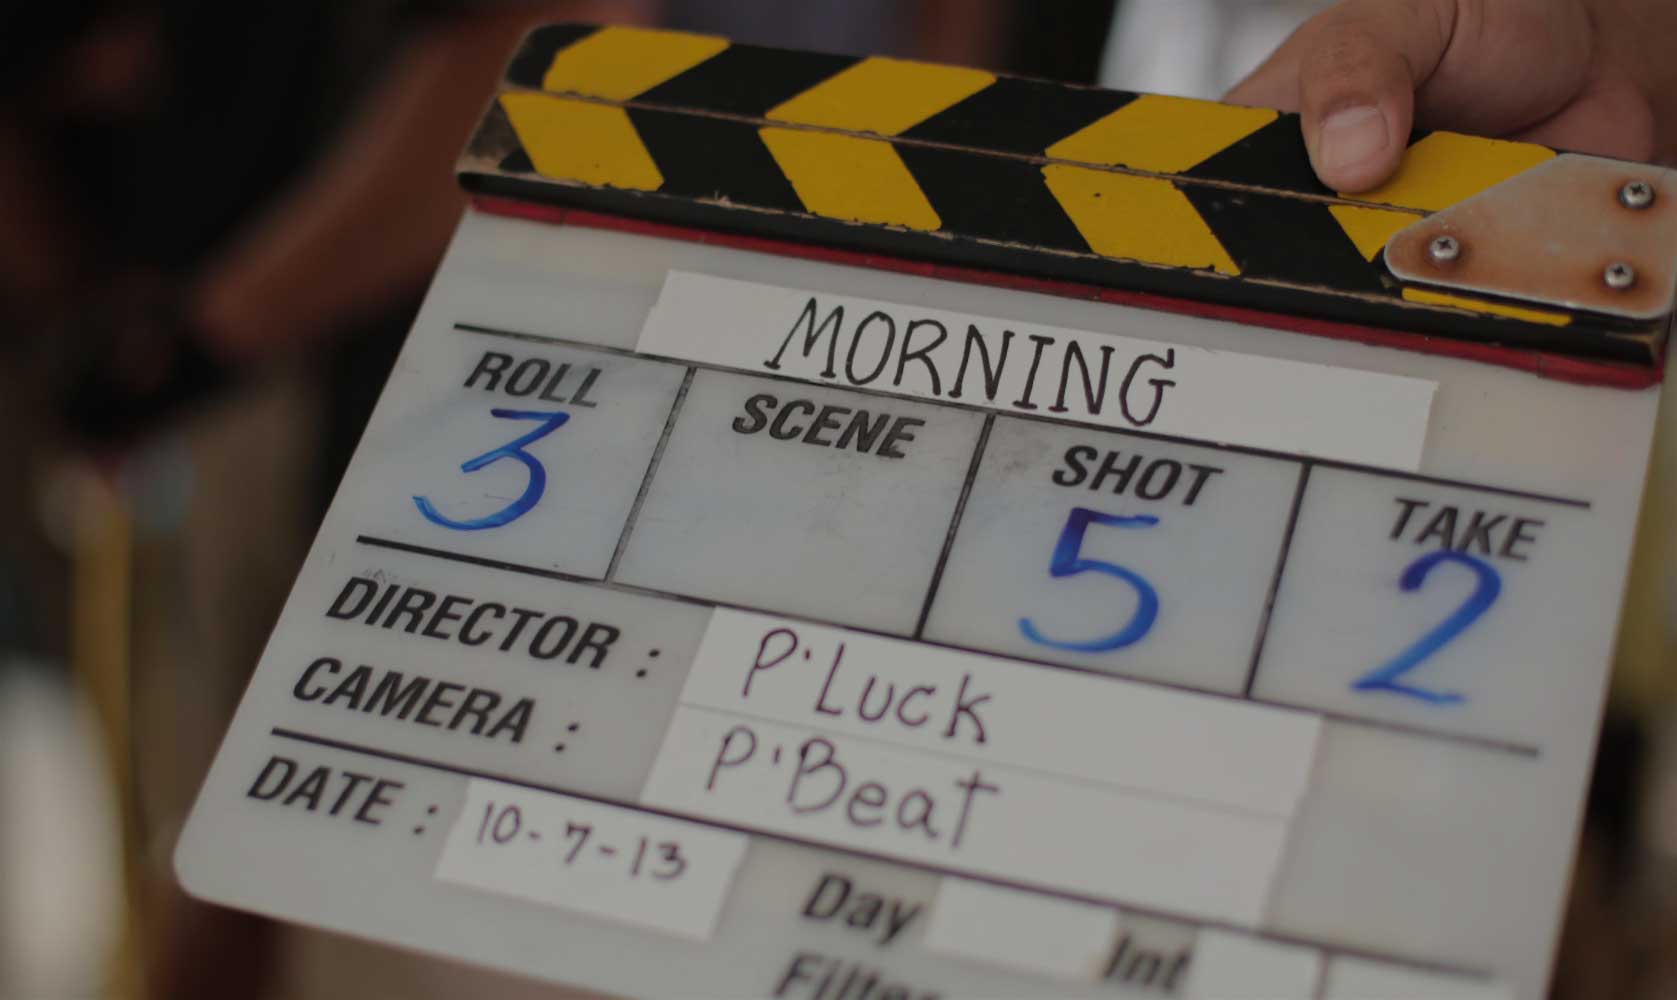 MORNING
ROLL SCENE SHOT TAKE
3 5 2
DIRECTOR : P'Luck
CAMERA : P'Beat
DATE : 10-7-13
Day Int
Filter